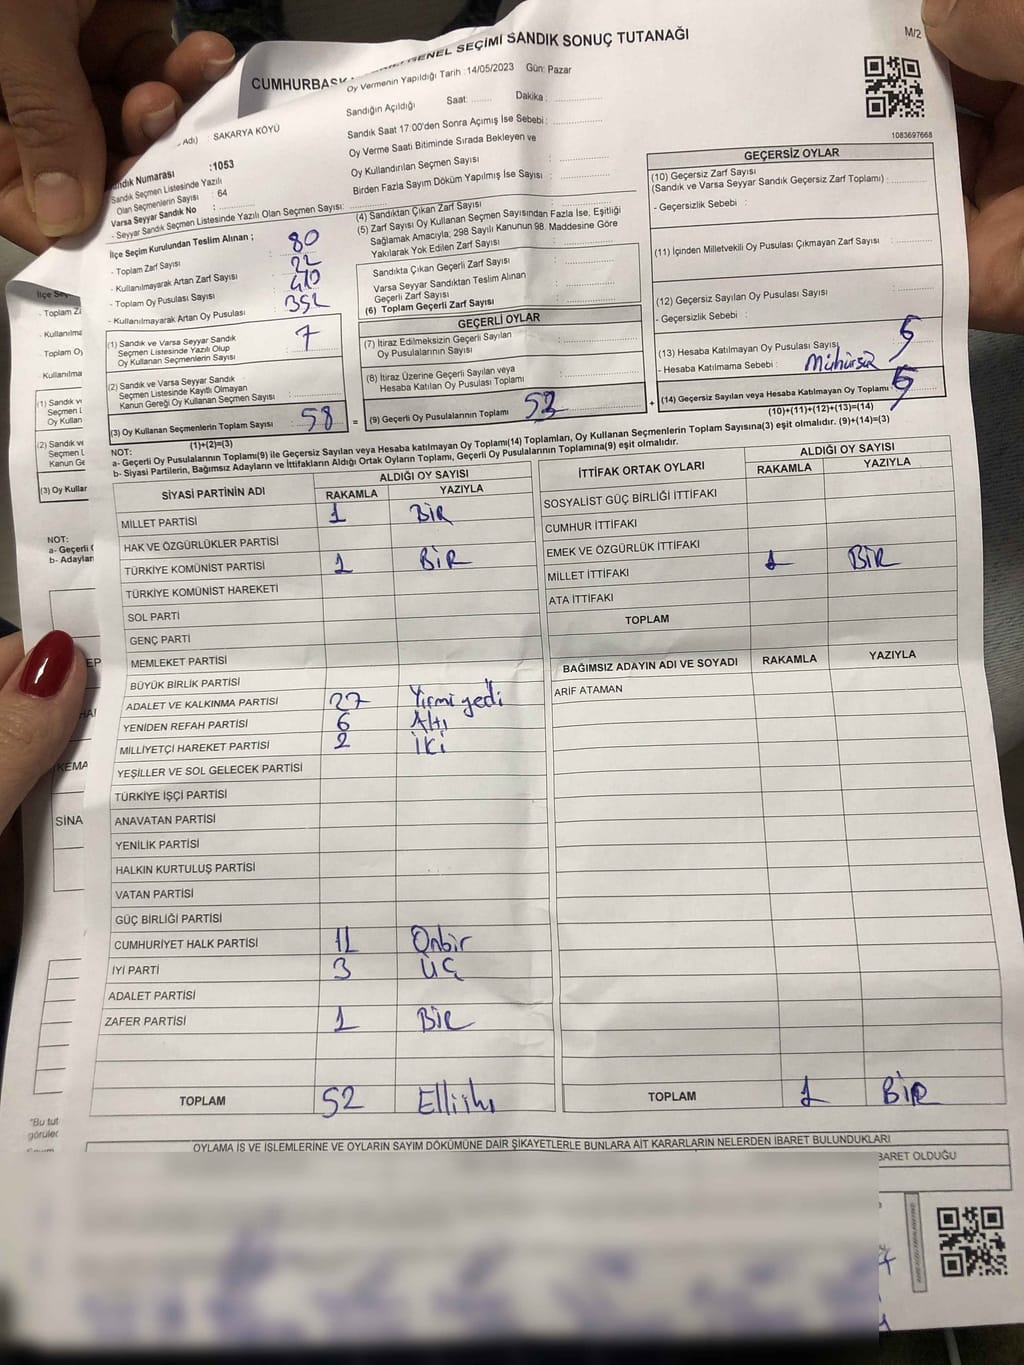 GENEL SEÇİMİ SANDIK SONUÇ TUTANAĞI
M/2
CUMHURBAŞK
Oy Vermenin Yapıldığı Tarih : 14/05/2023 Gün: Pazar
Sandığın Açıldığı Saat: Dakika :
Adı) : SAKARYA KÖYÜ
Sandık Saat 17:00'den Sonra Açımış İse Sebebi :
Oy Verme Saati Bitiminde Sırada Bekleyen ve
Oy Kullandırılan Seçmen Sayısı :
Birden Fazla Sayım Döküm Yapılmış İse Sayısı :
1083697668
ndık Numarası :1053
Sandık Seçmen Listesinde Yazılı
Olan Seçmenlerin Sayısı : 64
Varsa Seyyar Sandık No :
- Seyyar Sandık Seçmen Listesinde Yazılı Olan Seçmen Sayısı:
İlçe Seçim Kurulundan Teslim Alınan ;
- Toplam Zarf Sayısı : 80
- Kullanılmayarak Artan Zarf Sayısı : 22
- Toplam Oy Pusulası Sayısı : 410
- Kullanılmayarak Artan Oy Pusulası : 352
(1) Sandık ve Varsa Seyyar Sandık
Seçmen Listesinde Yazılı Olup
Oy Kullanan Seçmenlerin Sayısı : 7
(2) Sandık ve Varsa Seyyar Sandık
Seçmen Listesinde Kayıtlı Olmayan
Kanun Gereği Oy Kullanan Seçmen Sayısı :
(3) Oy Kullanan Seçmenlerin Toplam Sayısı : 58
(1)+(2)=(3)
(4) Sandıktan Çıkan Zarf Sayısı
(5) Zarf Sayısı Oy Kullanan Seçmen Sayısından Fazla İse, Eşitliği
Sağlamak Amacıyla; 298 Sayılı Kanunun 98. Maddesine Göre
Yakılarak Yok Edilen Zarf Sayısı
Sandıkta Çıkan Geçerli Zarf Sayısı
Varsa Seyyar Sandıktan Teslim Alınan
Geçerli Zarf Sayısı
(6) Toplam Geçerli Zarf Sayısı
GEÇERLİ OYLAR
(7) İtiraz Edilmeksizin Geçerli Sayılan
Oy Pusulalarının Sayısı
(8) İtiraz Üzerine Geçerli Sayılan veya
Hesaba Katılan Oy Pusulası Toplamı
= (9) Geçerli Oy Pusulalarının Toplamı 53 +
GEÇERSİZ OYLAR
(10) Geçersiz Zarf Sayısı
(Sandık ve Varsa Seyyar Sandık Geçersiz Zarf Toplamı) :
- Geçersizlik Sebebi :
(11) İçinden Milletvekili Oy Pusulası Çıkmayan Zarf Sayısı
(12) Geçersiz Sayılan Oy Pusulası Sayısı :
- Geçersizlik Sebebi :
(13) Hesaba Katılmayan Oy Pusulası Sayısı 5
- Hesaba Katılmama Sebebi : Mühürsüz
(14) Geçersiz Sayılan veya Hesaba Katılmayan Oy Toplamı : 5
(10)+(11)+(12)+(13)=(14)
NOT:
a- Geçerli Oy Pusulalarının Toplamı(9) ile Geçersiz Sayılan veya Hesaba katılmayan Oy Toplamı(14) Toplamları, Oy Kullanan Seçmenlerin Toplam Sayısına(3) eşit olmalıdır. (9)+(14)=(3)
b- Siyasi Partilerin, Bağımsız Adayların ve İttifakların Aldığı Ortak Oyların Toplamı, Geçerli Oy Pusulalarının Toplamına(9) eşit olmalıdır.
SİYASİ PARTİNİN ADI ALDIĞI OY SAYISI
RAKAMLA YAZIYLA
MİLLET PARTİSİ 1 BİR
HAK VE ÖZGÜRLÜKLER PARTİSİ
TÜRKİYE KOMÜNİST PARTİSİ 1 BİR
TÜRKİYE KOMÜNİST HAREKETİ
SOL PARTİ
GENÇ PARTİ
MEMLEKET PARTİSİ
BÜYÜK BİRLİK PARTİSİ
ADALET VE KALKINMA PARTİSİ 27 Yirmi yedi
YENİDEN REFAH PARTİSİ 6 Altı
MİLLİYETÇİ HAREKET PARTİSİ 2 iki
YEŞİLLER VE SOL GELECEK PARTİSİ
TÜRKİYE İŞÇİ PARTİSİ
ANAVATAN PARTİSİ
YENİLİK PARTİSİ
HALKIN KURTULUŞ PARTİSİ
VATAN PARTİSİ
GÜÇ BİRLİĞİ PARTİSİ
CUMHURİYET HALK PARTİSİ 11 Onbir
İYİ PARTİ 3 ÜÇ
ADALET PARTİSİ
ZAFER PARTİSİ 1 BİR
TOPLAM 52 Elliiki
İTTİFAK ORTAK OYLARI ALDIĞI OY SAYISI
RAKAMLA YAZIYLA
SOSYALİST GÜÇ BİRLİĞİ İTTİFAKI
CUMHUR İTTİFAKI
EMEK VE ÖZGÜRLÜK İTTİFAKI
MİLLET İTTİFAKI 1 BİR
ATA İTTİFAKI
TOPLAM
BAĞIMSIZ ADAYIN ADI VE SOYADI RAKAMLA YAZIYLA
ARİF ATAMAN
TOPLAM 1 BİR
OYLAMA İŞ VE İŞLEMLERİNE VE OYLARIN SAYIM DÖKÜMÜNE DAİR ŞİKAYETLERLE BUNLARA AİT KARARLARIN NELERDEN İBARET BULUNDUKLARI
BARET OLDUĞU
- Toplam Z
- Kullanılma
Toplam Oy
Kullanılma
(1) Sandık v
Seçmen L
Oy Kullan
(2) Sandık ve
Seçmen L
Kanun Ge
(3) Oy Kullar
NOT:
a- Geçerli
b- Adaylar
EP
KEMA
SİNA
"Bu tut
görülec